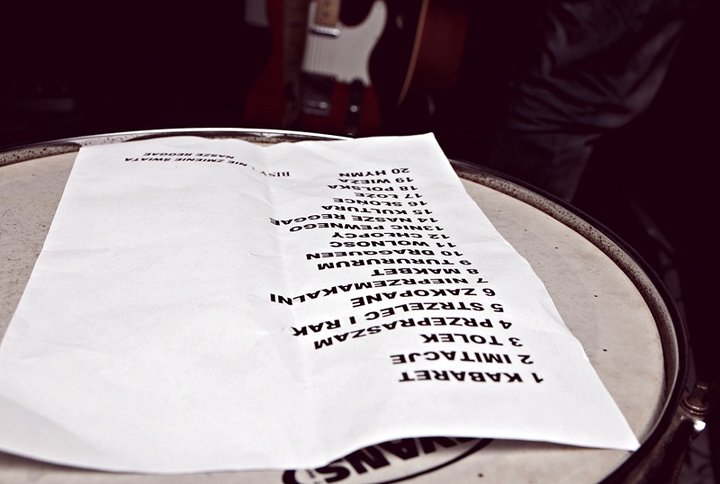 1 KABARET
2 IMITACJE
3 TOLEK
4 PRZEPRASZAM
5 STRZELEC I RAK
6 ZAKOPANE
7 NIEPRZEMAKALNI
8 MAKBET
9 TURURURUM
10 DRAGQUEEN
11 WOLNOSC
12 CHŁOPCY
13NIC PEWNEGO
14 NASZE REGGAE
15 KULTURA
16 SŁONCE
17 ŁOZE
18 POLSKA
19 WIEZA
20 HYMN
BISY
NIE ZMIENIE SWIATA
NASZE REGGAE
EVANS